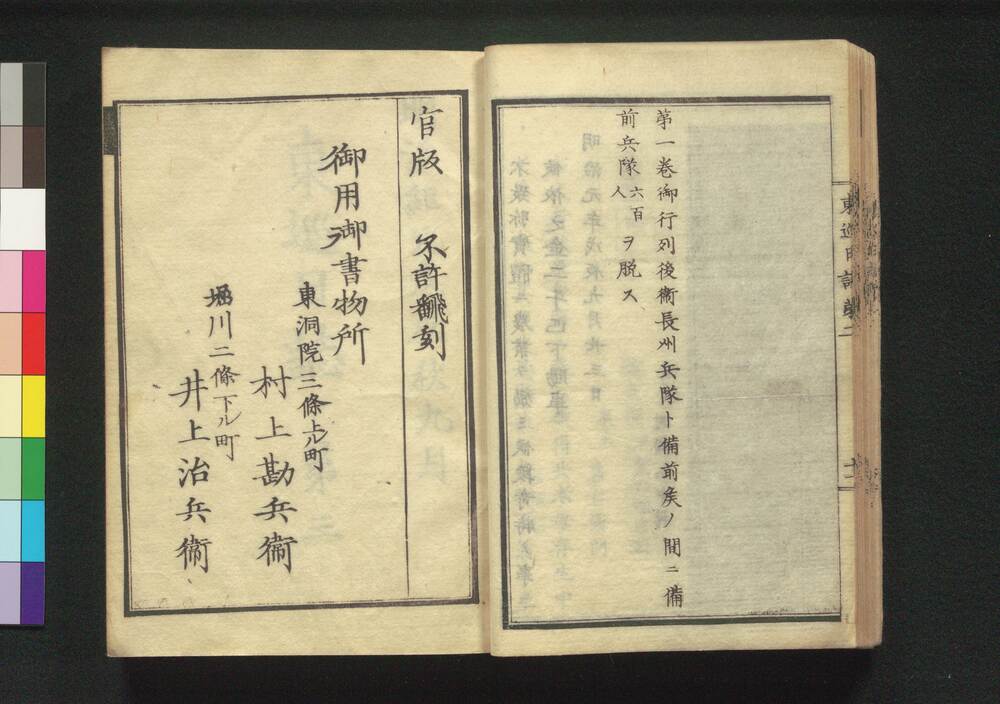 第一巻御行列後衞長州兵隊ト備前矦ノ間ニ備
前兵隊六百人ヲ脱ス
東巡日誌第二
十一
官版　不許飜刻
御用御書物所
東洞院三條上ル町
村上勘兵衞
堀川二條下ル町
井上治兵衞